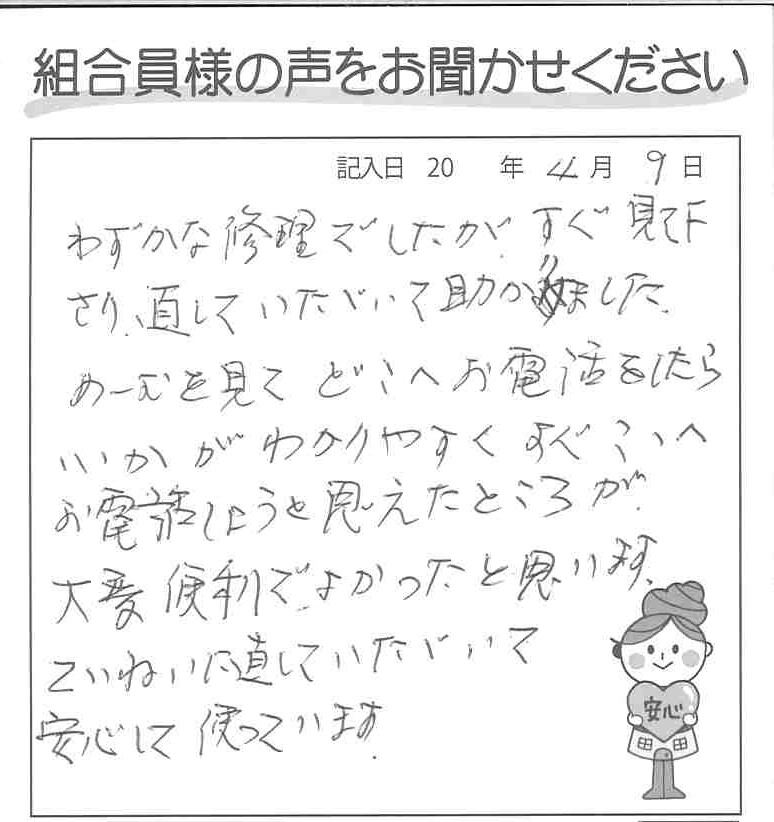 組合員様の声をお聞かせください
記入日 20 年 4月 9日
わずかな修理でしたが、すぐ見て下
さり、直していただいて助かりました。
めーむを見てどこへお電話をしたら
いいかがわかりやすくすぐここへ
お電話しようと思えたところが
大変便利でよかったと思います。
ていねいに直していただいて
安心して使っています。
安心